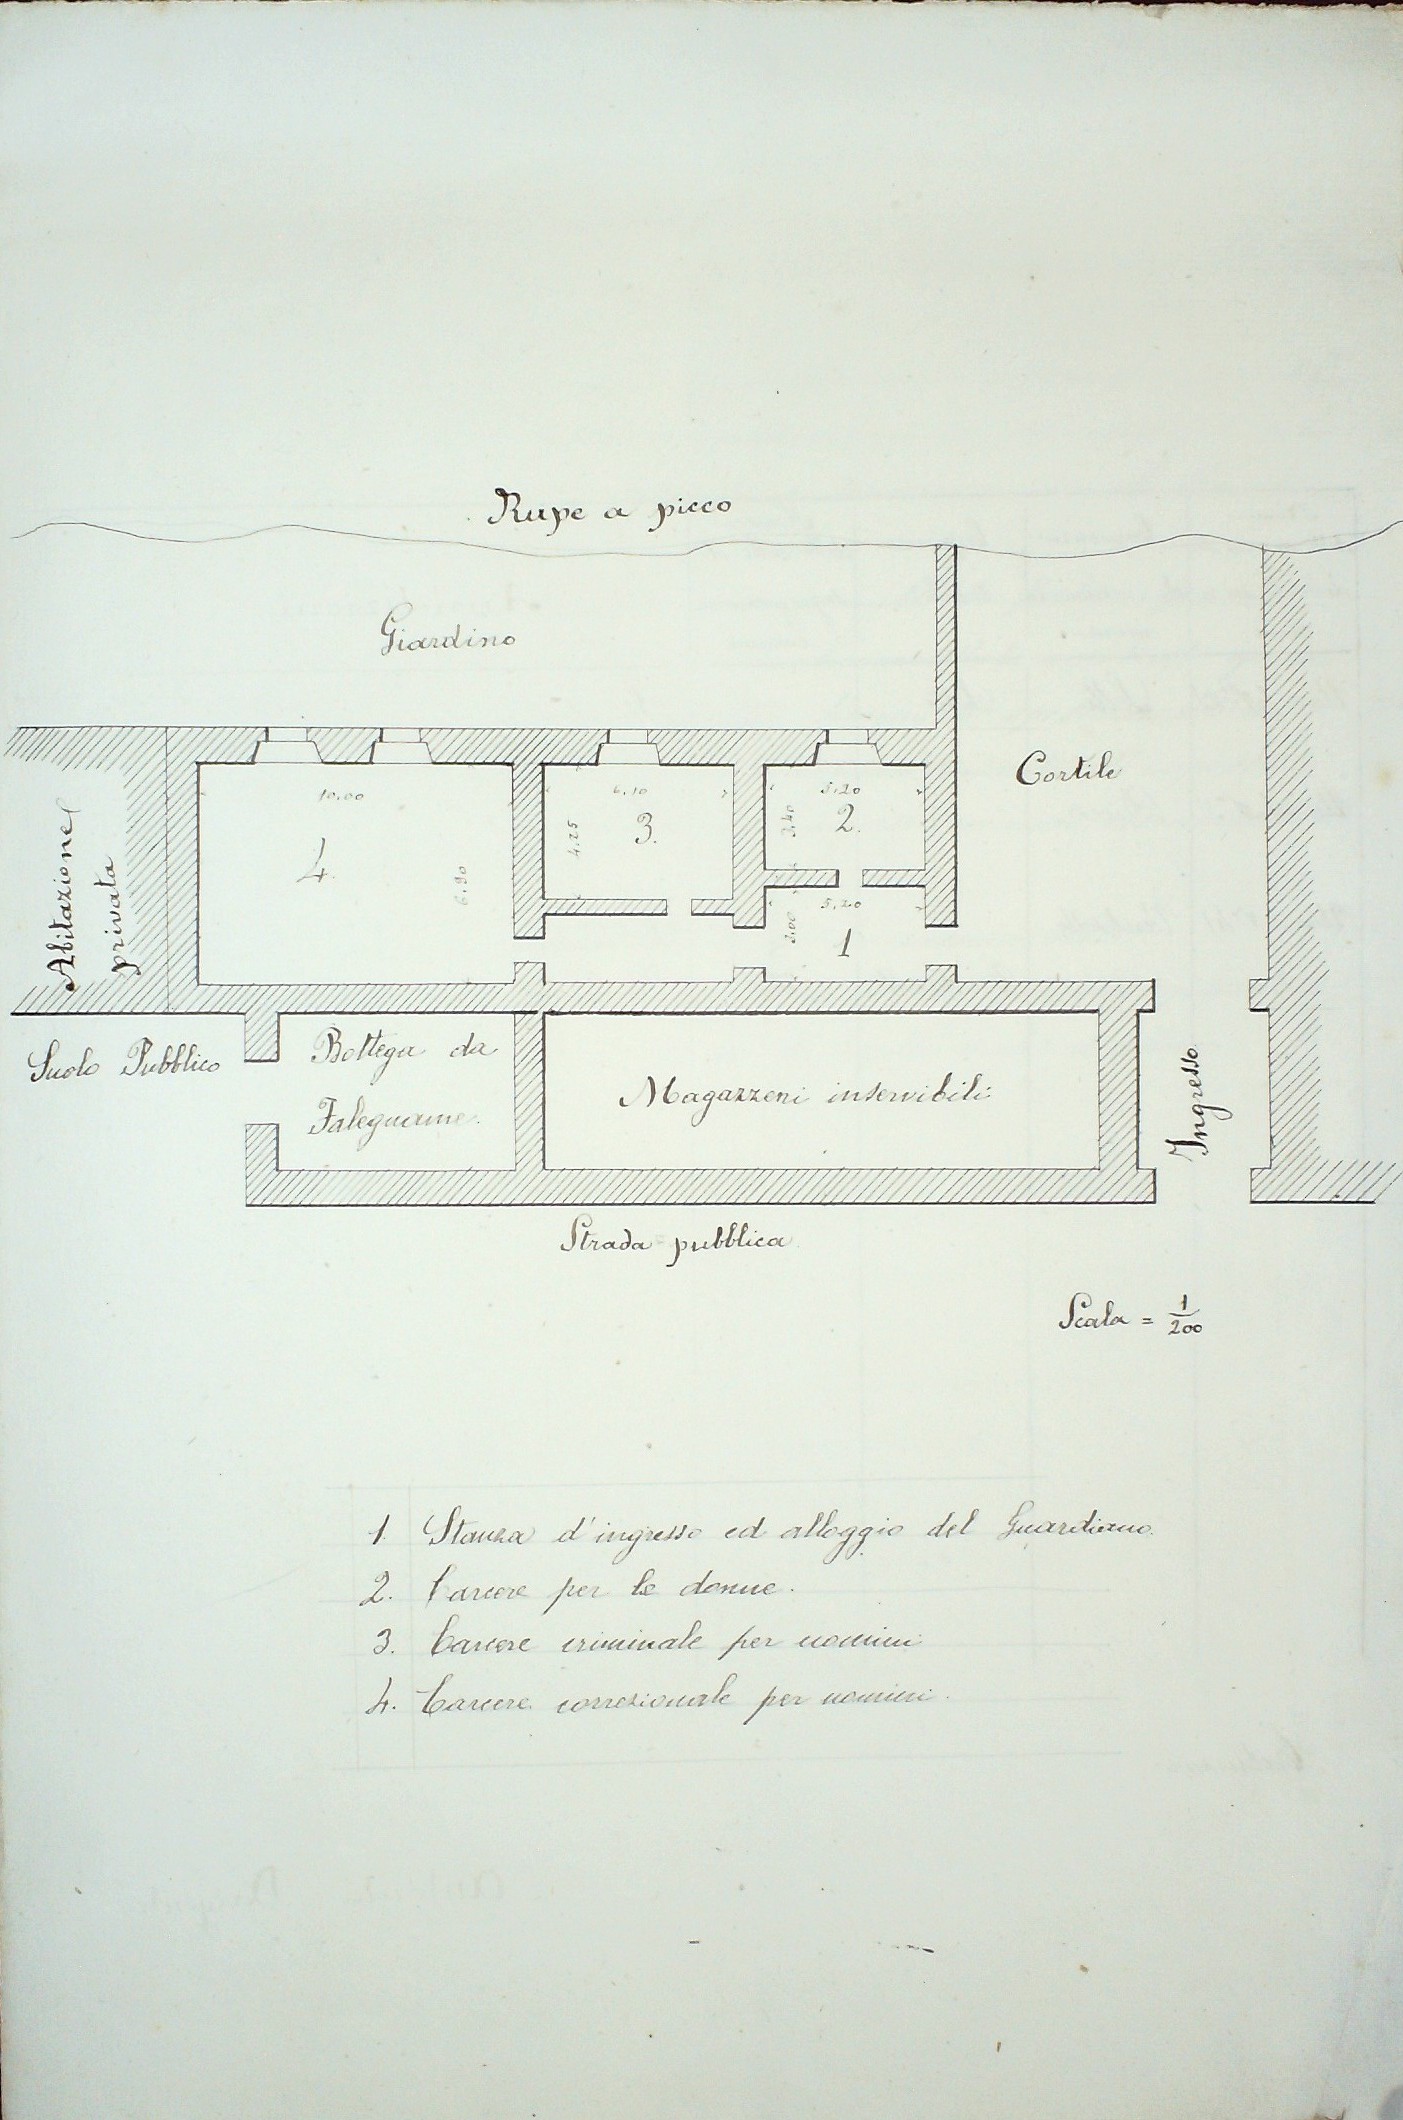 Rupe a picco
Giardino
Cortile
10.00
6.10
5.20
4.
3.
2.
6.90
4.25
3.40
5.20
3.00
1
Abitazione
privata
Suolo Pubblico
Bottega da
Falegname.
Magazzeni inservibili
Ingresso
Strada pubblica
Scala = 1/200
1. Stanza d'ingresso ed alloggio del Guardiano.
2. Carcere per le donne.
3. Carcere criminale per uomini
4. Carcere correzionale per uomini.